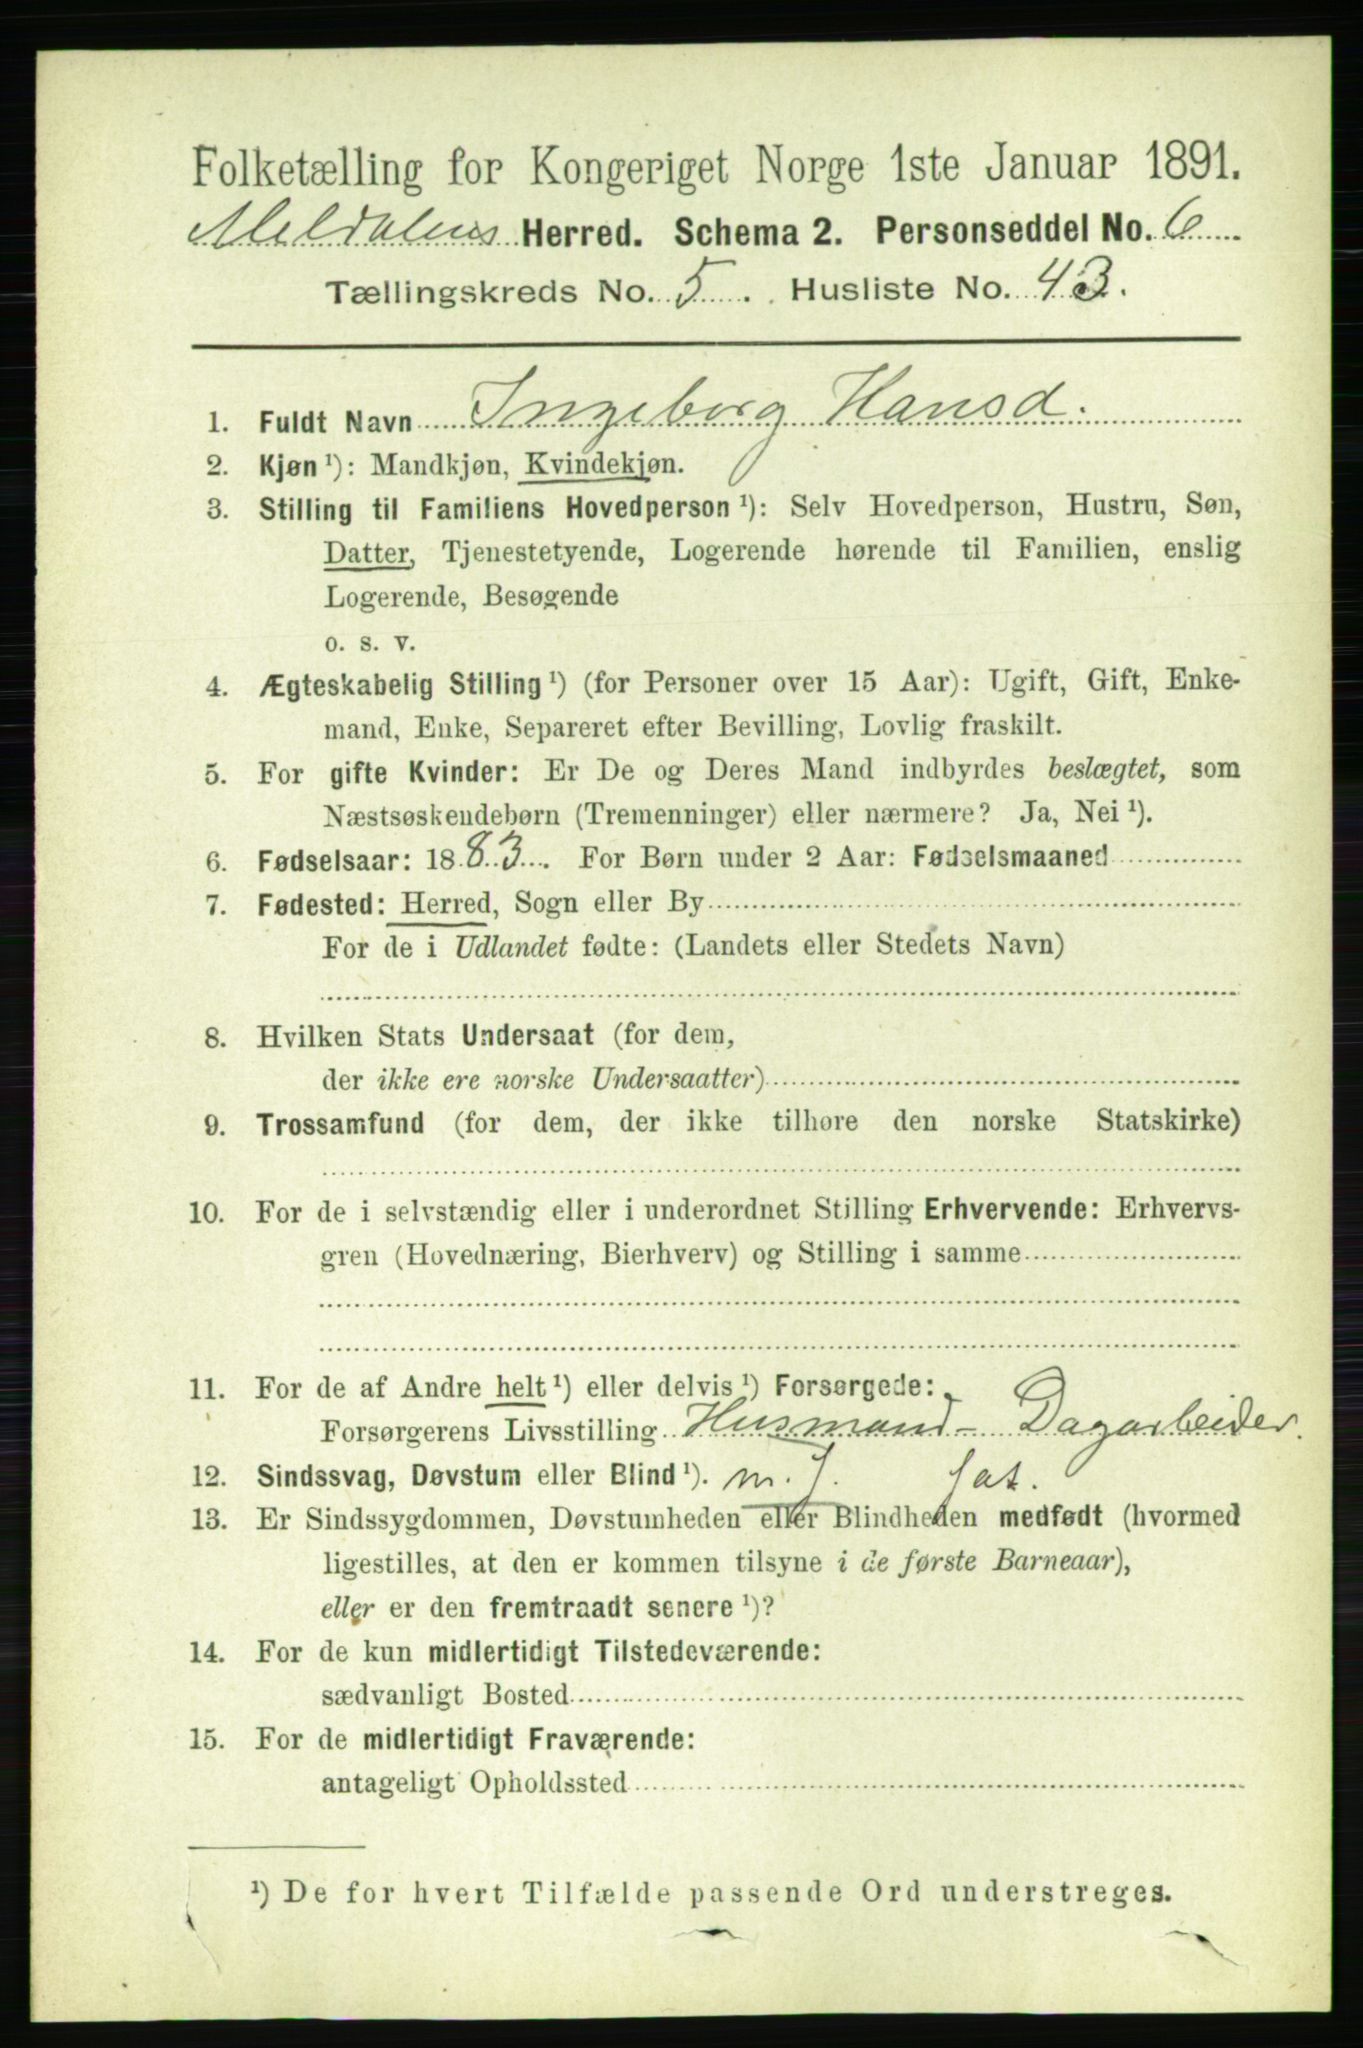 Folketælling for Kongeriget Norge 1ste Januar 1891.
Meldalens Herred. Schema 2. Personseddel No. 6
Tællingskreds No. 5. Husliste No. 43.
1. Fuldt Navn Ingeborg Hansd.
2. Kjøn ¹): Mandkjøn, Kvindekjøn.
3. Stilling til Familiens Hovedperson ¹): Selv Hovedperson, Hustru, Søn,
Datter, Tjenestetyende, Logerende hørende til Familien, enslig
Logerende, Besøgende
o. s. v.
4. Ægteskabelig Stilling ¹) (for Personer over 15 Aar): Ugift, Gift, Enke-
mand, Enke, Separeret efter Bevilling, Lovlig fraskilt.
5. For gifte Kvinder: Er De og Deres Mand indbyrdes beslægtet, som
Næstsøskendebørn (Tremenninger) eller nærmere? Ja, Nei ¹).
6. Fødselsaar: 1883. For Børn under 2 Aar: Fødselsmaaned
7. Fødested: Herred, Sogn eller By
For de i Udlandet fødte: (Landets eller Stedets Navn)
8. Hvilken Stats Undersaat (for dem,
der ikke ere norske Undersaatter)
9. Trossamfund (for dem, der ikke tilhøre den norske Statskirke)
10. For de i selvstændig eller i underordnet Stilling Erhvervende: Erhvervs-
gren (Hovednæring, Bierhverv) og Stilling i samme
11. For de af Andre helt ¹) eller delvis ¹) Forsørgede:
Forsørgerens Livsstilling Husmand - Dagarbeider.
12. Sindssvag, Døvstum eller Blind ¹). m. J.
13. Er Sindssygdommen, Døvstumheden eller Blindheden medfødt (hvormed
ligestilles, at den er kommen tilsyne i de første Barneaar),
eller er den fremtraadt senere ¹)?
14. For de kun midlertidigt Tilstedeværende:
sædvanligt Bosted
15. For de midlertidigt Fraværende:
antageligt Opholdssted
¹) De for hvert Tilfælde passende Ord understreges.